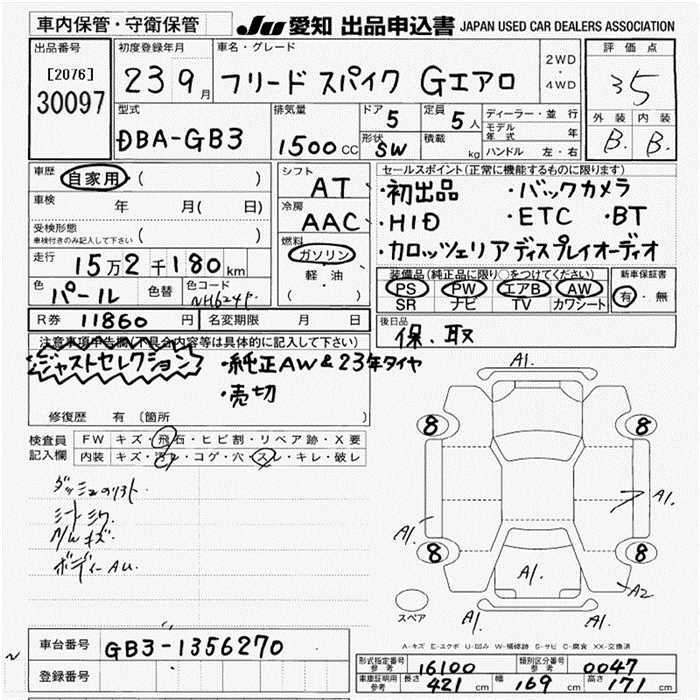 車内保管・守衛保管 JU 愛知 出品申込書 JAPAN USED CAR DEALERS ASSOCIATION
出品番号 初度登録年月 車名・グレード 評価点
[2076] 23 9月 フリード スパイク Gエアロ 2WD・4WD 35
30097
型式 排気量 ドア 5 定員 5人 ディーラー・並行 外装 内装
DBA-GB3 1500cc 形状 SW 積載 kg モデル年式 年 B. B.
ハンドル 左・右
車歴 自家用 ( ) シフト AT セールスポイント(正常に機能するものに限ります)
車検 年 月( 日) 冷房 AAC ・初出品 ・バックカメラ
受検形態 車検付きのみ記入して下さい ( ) ・HID ・ETC ・BT
走行 15万2千180km 燃料 ガソリン ・カロッツェリアディスプレイオーディオ
軽油 ( )
色 パール 色替 色コード NH624P 装備品(純正品に限り○をつけてください) 新車保証書
PS PW エアB AW 有・無
SR ナビ TV カワシート
R券 11860円 名変期限 月 日 後日品 保、取
注意事項申告欄(不具合内容等は具体的に記入して下さい)
ジャストセレクション ・純正AW&23年タイヤ
・売切
修復歴 有 (箇所 )
検査員記入欄 FW キズ・飛石・ヒビ割・リペア跡・X要
内装 キズ・汚れ・コゲ・穴・スレ・キレ・破レ
シートシワ
ハンキズ
ボディーAU.
A1.
8 8
A1. A1.
8 8
A1. A2
スペア
A1. A1.
A-キズ E-エクボ U-凹み W-補修跡 S-サビ C-腐食 XX-交換済
車台番号 GB3-1356270
登録番号
形式指定番号 参考 16100 類別区分番号 参考 0047
車庫証明用 参考 長さ 421cm 幅 169cm 高さ 171cm